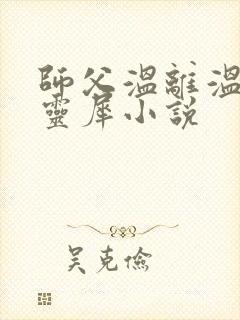 師父溫離溫
靈犀小說
吴克儉